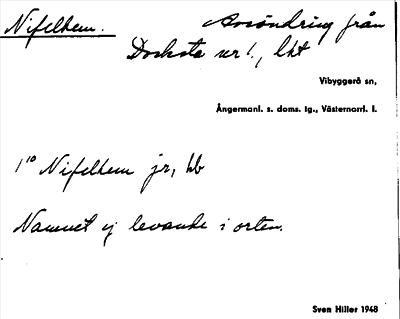 Nifelhem. Avsöndring från
Docksta nr 1, lht
Vibyggerå sn,
Ångermanl. s. doms. tg., Västernorrl. l.
1° Nifelhem jr, hb
Namnet ej levande i orten.
Sven Hiller 1948